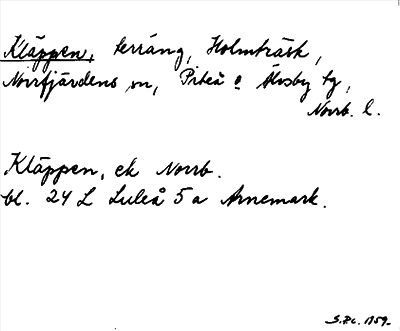 Kläppen, terräng, Holmträsk,
Norrfjärdens sn, Piteå o Älvsby tg,
Norrb. l.
Kläppen, ek Norrb.
bl. 24 L Luleå 5 a Arnemark.
1959.